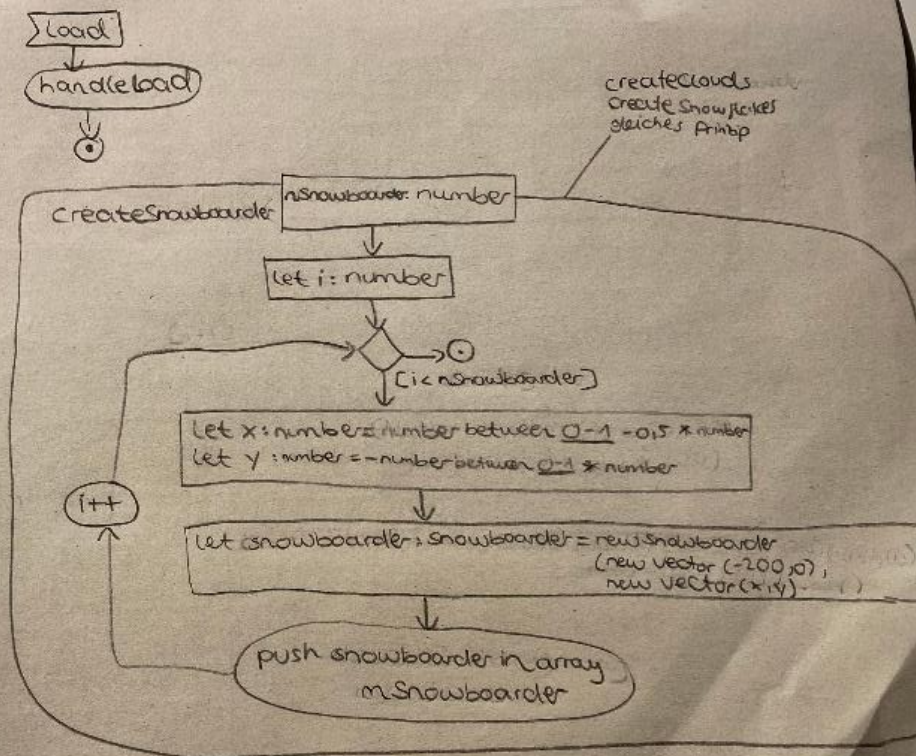 load
handleload
createClouds
create Snowflakes
gleiches Prinzip
createSnowboarder
nSnowboarder: number
let i: number
[i < nSnowboarder]
let x: number = number between 0-1 -0,5 * number
let y: number = -number between 0-1 * number
i++
let snowboarder: snowboarder = new snowboarder
(new vector (-200,0),
new vector(x,y)
push snowboarder in array
nSnowboarder